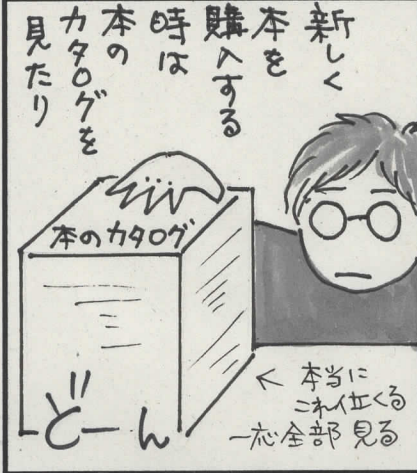 新しく
本を
購入する
時は
本の
カタログを
見たり
本のカタログ
どーん
← 本当に
これ位くる
一応全部見る